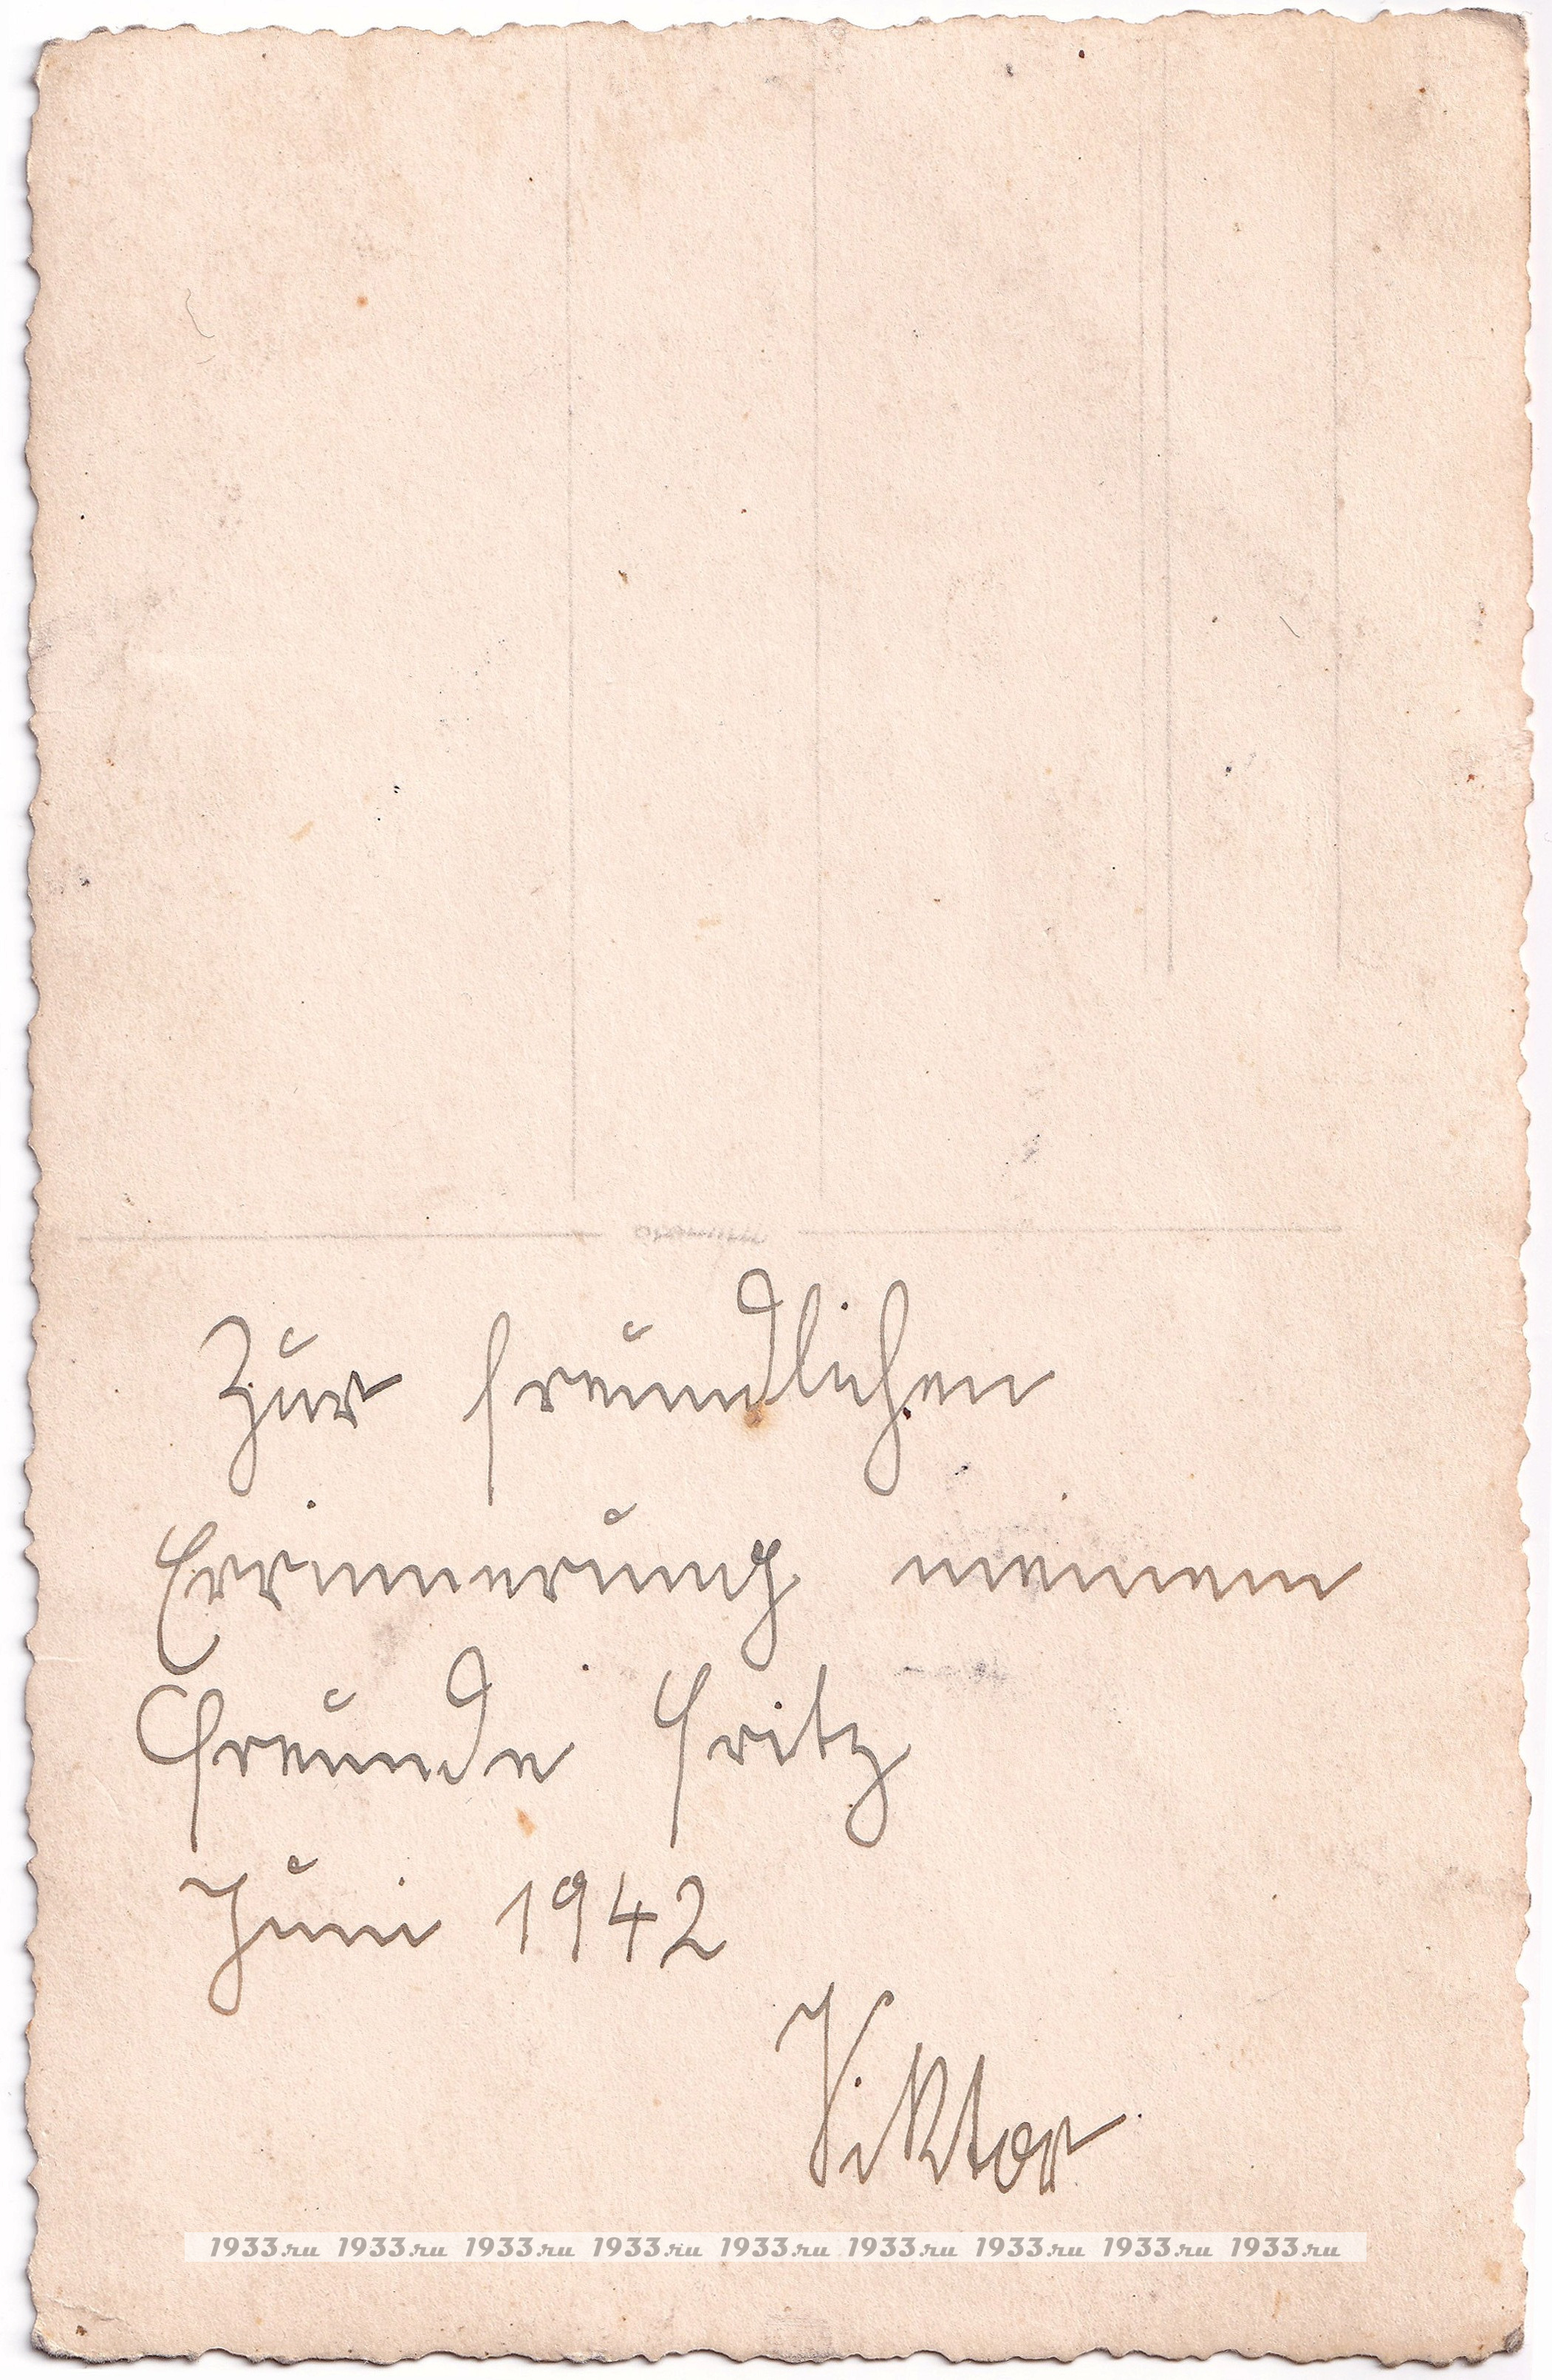 Zur freundlichen
Errinnerung meinem
Freunde Fritz
Juni 1942
Viktor
1933.ru 1933.ru 1933.ru 1933.ru 1933.ru 1933.ru 1933.ru 1933.ru 1933.ru